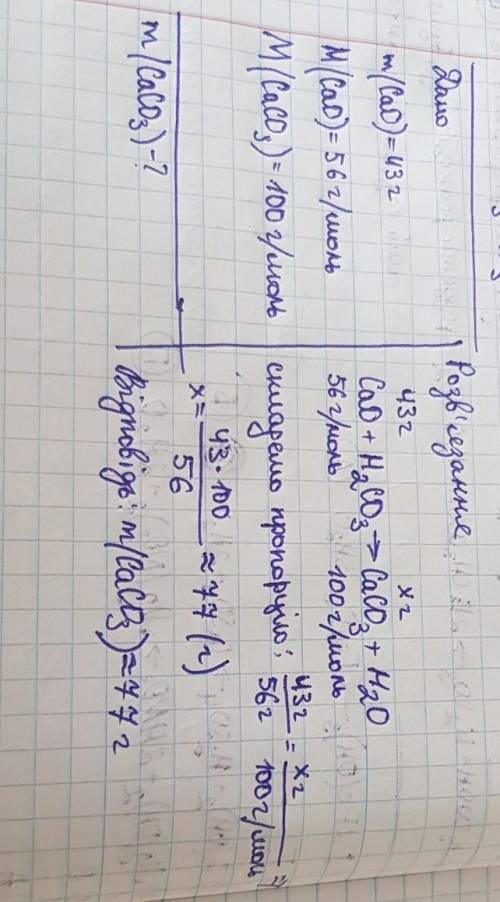 Дано
m(CaO)=43г
M(CaO)=56г/моль
M(CaCO₃)=100г/моль
m(CaCO₃)-?
Розв'язання
43г xг
CaO + H₂CO₃ → CaCO₃ + H₂O
56г/моль 100г/моль
складемо пропорцію: 43г/56г = xг/100г/моль ⇒
x = 43·100/56 ≈ 77(г)
Відповідь: m(CaCO₃)≈77г